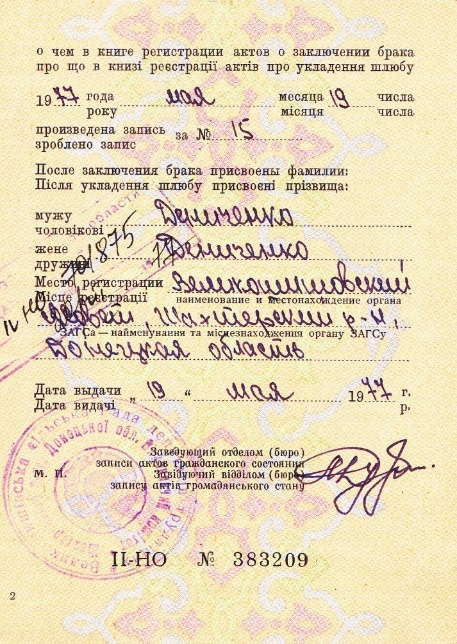 о чем в книге регистрации актов о заключении брака
про що в книзі реєстрації актів про укладення шлюбу
1977 года мая месяца 19 числа
року місяця числа
произведена запись за № 15
зроблено запис
После заключения брака присвоены фамилии:
Після укладення шлюбу присвоєні прізвища:
мужу Демченко
чоловікові
жене Демченко
дружині
Место регистрации
Місце реєстрації наименование и местонахождение органа
Шахтерский р-н,
ЗАГСа — найменування та місцезнаходження органу ЗАГСу
Донецкая область
Дата выдачи „ 19 “ мая 1977 г.
Дата видачі р.
Заведующий отделом (бюро)
записи актов гражданского состояния
М. П. Завідуючий відділом (бюро)
запису актів громадянського стану
II-НО № 383209
2